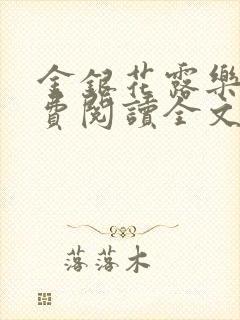 金銀花露樂
費閱讀全文
落落木